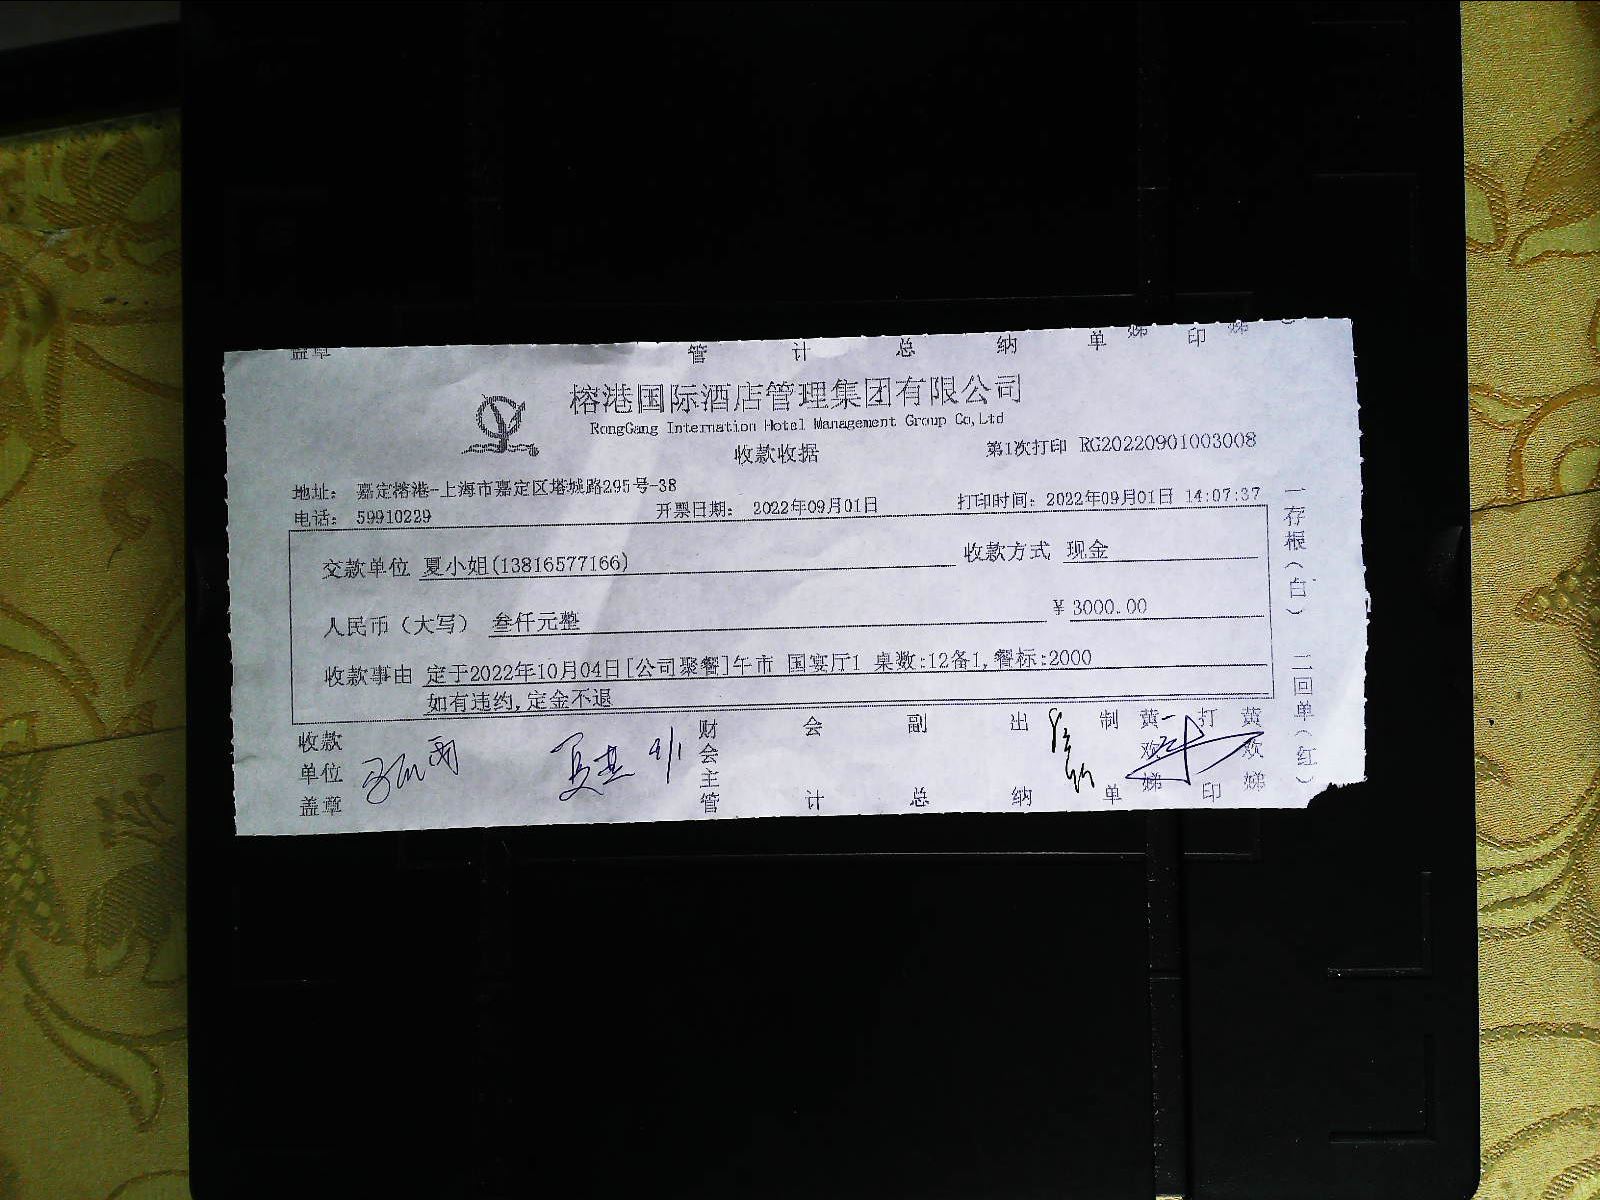 盖章 管 计 总 纳 单 娣 印 娣
榕港国际酒店管理集团有限公司
RongGang Internation Hotel Management Group Co,Ltd
收款收据
第1次打印 RG20220901003008
地址: 嘉定榕港-上海市嘉定区塔城路295号-38
电话: 59910229 开票日期: 2022年09月01日 打印时间: 2022年09月01日 14:07:37
交款单位 夏小姐(13816577166) 收款方式 现金
人民币(大写) 叁仟元整 ¥ 3000.00
收款事由 定于2022年10月04日[公司聚餐]午市 国宴厅1 桌数:12备1,餐标:2000
如有违约,定金不退
收款单位盖章
9/1
财会主管
会计
副总
出纳
制单
黄欢娣
打印
黄欢娣
一存根(白) 二回单(红)